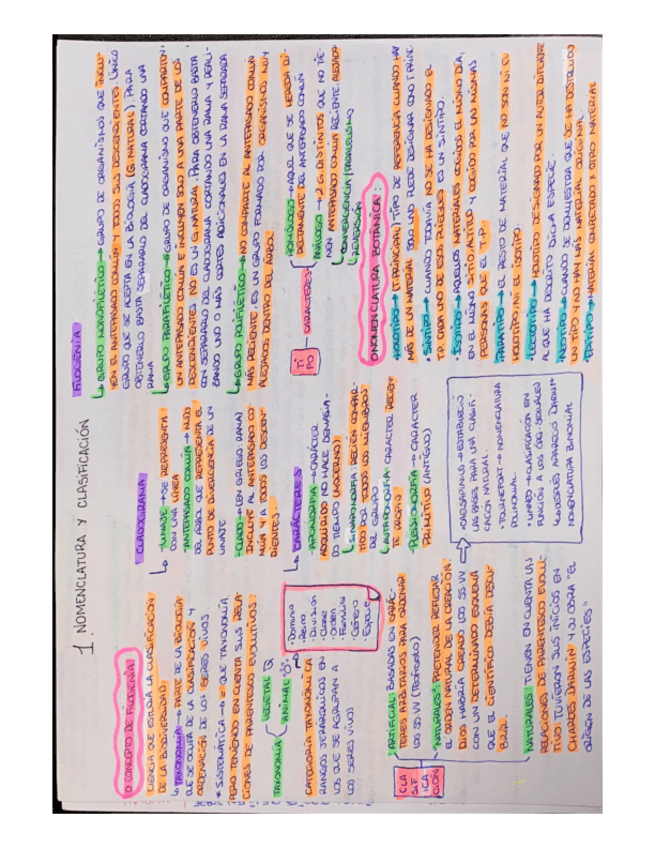 1. NOMENCLATURA Y CLASIFICACIÓN
O CONCEPTO DE FILOGENIA
CIENCIA QUE ESTUDIA LA CLASIFICACIÓN
DE LA BIODIVERSIDAD.
TAXONOMÍA → PARTE DE LA BIOLOGÍA
QUE SE OCUPA DE LA CLASIFICACIÓN Y
ORDENACIÓN DE LOS SERES VIVOS.
* SISTEMÁTICA → = QUE TAXONOMÍA,
PERO TENIENDO EN CUENTA SUS RELA-
CIONES DE PARENTESCO EVOLUTIVOS.
TAXONOMÍA
VEGETAL
ANIMAL
CATEGORÍA TAXONÓMICA
RANGOS JERÁRQUICOS EN
LOS QUE SE AGRUPAN A
LOS SERES VIVOS
· Dominio
· Reino
· División
· Clase
· Orden
· Familia
· Género
· Especie
CLA
SIF
ICA
CIÓN
ARTIFICIAL: BASADAS EN CARÁC-
TERES ARBITRARIOS PARA ORDENAR
LOS SS VV (TEOFRASTO)
"NATURALES": PRETENDER REFLEJAR
EL ORDEN NATURAL DE LA CREACIÓN.
DIOS HABRÍA CREADO LOS SS VV
CON UN DETERMINADO ESQUEMA
QUE EL CIENTÍFICO DEBÍA DESCU-
BRIR.
NATURALES: TIENEN EN CUENTA LAS
RELACIONES DE PARENTESCO EVOLU-
TIVO TUVIERON SUS INICIOS EN
CHARLES DARWIN Y SU OBRA "EL
ORIGEN DE LAS ESPECIES"
CLADOGRAMA
- LINAJE → SE REPRESENTA
CON UNA LÍNEA
- ANTEPASADO COMÚN → NUDO
DEL ÁRBOL QUE REPRESENTA EL
PUNTO DE DIVERGENCIA DE UN
LINAJE
- CLADO → (EN GRIEGO: RAMA)
INCLUYE AL ANTEPASADO CO
MÚN Y A TODOS LOS DESCEN-
DIENTES.
CARÁCTERES
- APOMORFIA → CARÁCTER
ADQUIRIDO NO HACE DEMASIA-
DO TIEMPO (MODERNO)
SINAPOMORFIA: RECIÉN COMPAR-
TIDO POR TODOS LOS MIEMBROS
DEL GRUPO
AUTAPOMORFIA: CARACTER RECIEN-
TE PROPIO
- PLESIOMORFIA → CARACTER
PRIMITIVO (ANTIGUO)
• CAESALPINUS → ESTABLECIÓ
LAS BASES PARA UNA CLASIFI-
CACIÓN NATURAL.
• TOURNEFORT → NOMENCLATURA
POLINOMIAL
• LINNEO → CLASIFICACIÓN EN
FUNCIÓN A LOS ÓRG. SEXUALES
DESPUÉS APARECIÓ DARWIN
NOMENCLATURA BINOMIAL
FILOGENIA
GRUPO MONOFILÉTICO → GRUPO DE ORGANISMOS QUE INCLU-
YEN EL ANTEPASADO COMÚN Y TODOS SUS DESCENDIENTES. ÚNICO
GRUPO QUE SE ACEPTA EN LA BIOLOGÍA (G. NATURAL). PARA
OBTENERLO BASTA SEPARARLO DEL CLADOGRAMA CORTANDO UNA
RAMA
GRUPO PARAFILÉTICO → GRUPO DE ORGANISMO QUE COMPARTEN
UN ANTEPASADO COMÚN E INCLUYEN SOLO A UNA PARTE DE LOS
DESCENDIENTES. NO ES UN G. NATURAL. PARA OBTENERLO BASTA
CON SEPARARLO DEL CLADOGRAMA CORTANDO UNA RAMA Y REALI-
ZANDO UNO O MÁS CORTES ADICIONALES EN LA RAMA SEPARADA
GRUPO POLIFILÉTICO → NO COMPARTE AL ANTEPASADO COMÚN
MÁS RECIENTE. ES UN GRUPO FORMADO POR ORGANISMOS MUY
ALEJADOS DENTRO DEL ÁRBOL
TI
PO
CARACTERES
HOMÓLOGO → AQUEL QUE SE HEREDA DI-
RECTAMENTE DEL ANTEPASADO COMÚN
ANÁLOGO → 2 G. DISTINTOS QUE NO TIE-
NEN ANTEPASADO COMÚN RECIENTE. ALEJADO
CONVERGENCIA/PARALELISMO
REVERSIÓN
O NOMENCLATURA BOTÁNICA:
• HOLOTIPO → (T. PRINCIPAL) TIPO DE REFERENCIA CUANDO HAY
MÁS DE UN MATERIAL SOLO UNO PUEDE DESIGNAR COMO T. PRINC.
• SINTIPO → CUANDO TODAVÍA NO SE HA DESIGNADO EL
T.P. CADA UNO DE ESOS PLIEGUES ES UN SINTIPO.
• ISOTIPO → AQUELLOS MATERIALES COGIDOS EL MISMO DÍA,
EN EL MISMO SITIO, ALTITUD Y COGIDO POR LAS MISMAS
PERSONAS QUE EL T.P.
• PARATIPO → EL RESTO DE MATERIAL QUE NO SON NI EL
HOLOTIPO, NI EL ISOTIPO.
• LECTOTIPO → HOLOTIPO DESIGNADO POR UN AUTOR DIFERENTE
AL QUE HA DESCRITO DICHA ESPECIE.
• NEOTIPO → CUANDO SE DEMUESTRA QUE SE HA DESTRUIDO
UN TIPO Y NO HAY MÁS MATERIAL ORIGINAL.
• EPITIPO → MATERIAL CONECTADO A OTRO MATERIAL